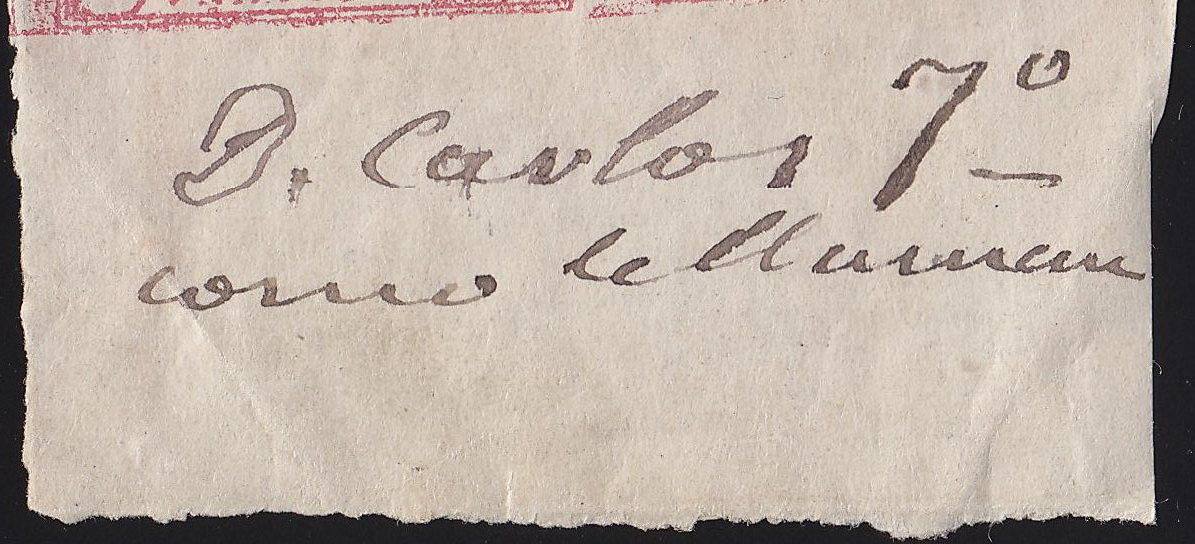 D. Carlos 7º
como le llaman